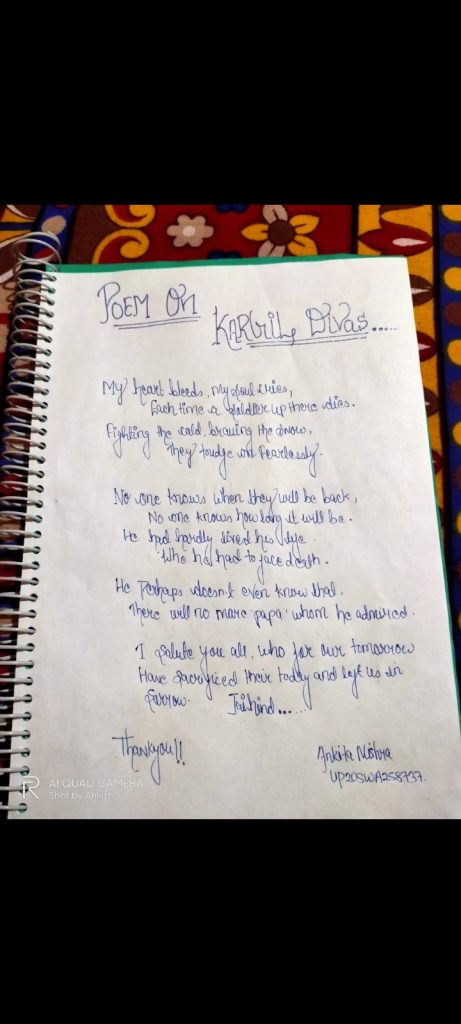 POEM ON
KARGIL DIVAS.....
My heart bleeds, my soul cries,
Each time a soldier up there dies.
Fighting the cold, braving the snow,
They trudge on fearlessly.
No one knows when they will be back,
No one knows how long it will be.
He had hardly lived his life
Who had to face death.
He Perhaps doesn't even know that.
There will no more 'papa' whom he admired.
I salute you all, who for our tomorrow
Have sacrificed their today and left us in
sorrow. Jaihind......
Thankyou!!
Ankita Mishra
UP20SWA258737.
R AI QUAD CAMERA
Shot by Ankita